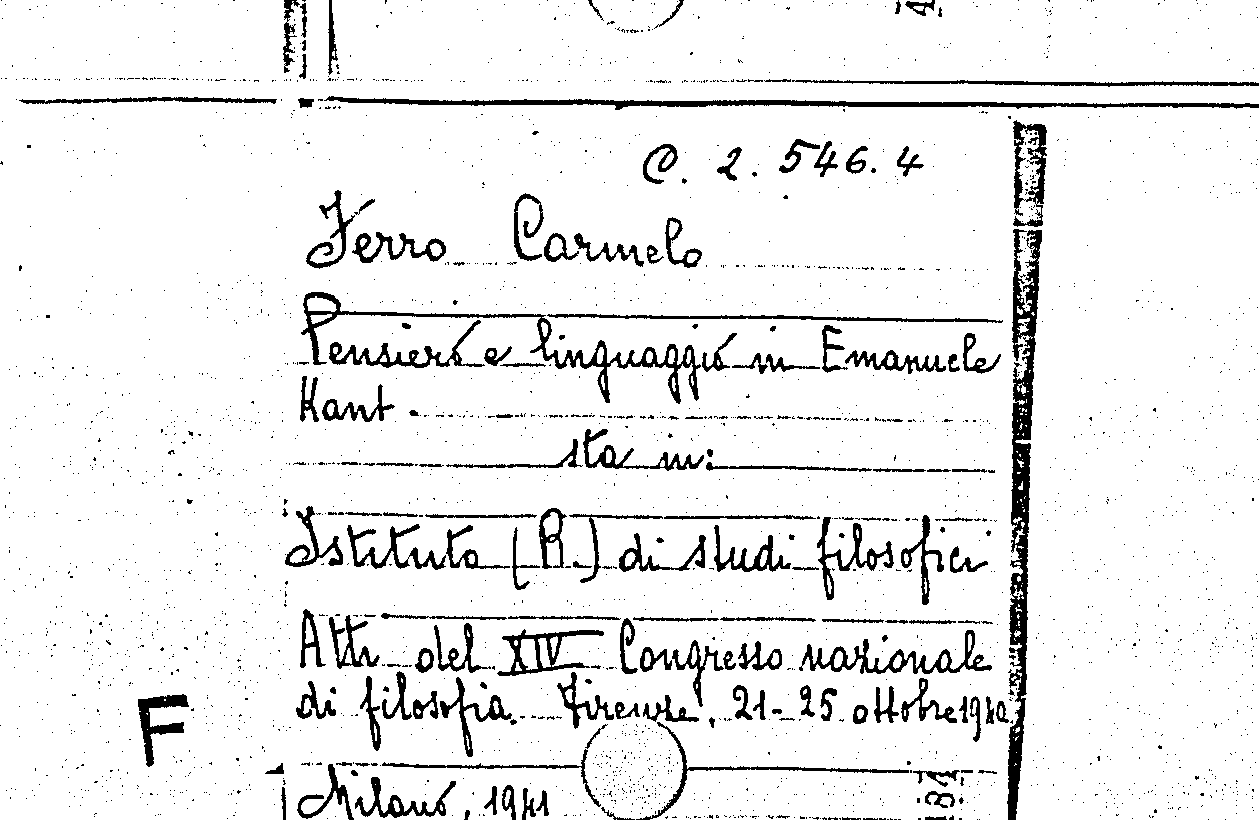 C. 2. 546. 4
Ferro Carmelo
Pensiero e linguaggio in Emanuele
Kant.
sta in:
Istituto (R.) di studi filosofici
Atti del XIV Congresso nazionale
di filosofia. Firenze, 21-25 ottobre 1940
F
Milano, 1941